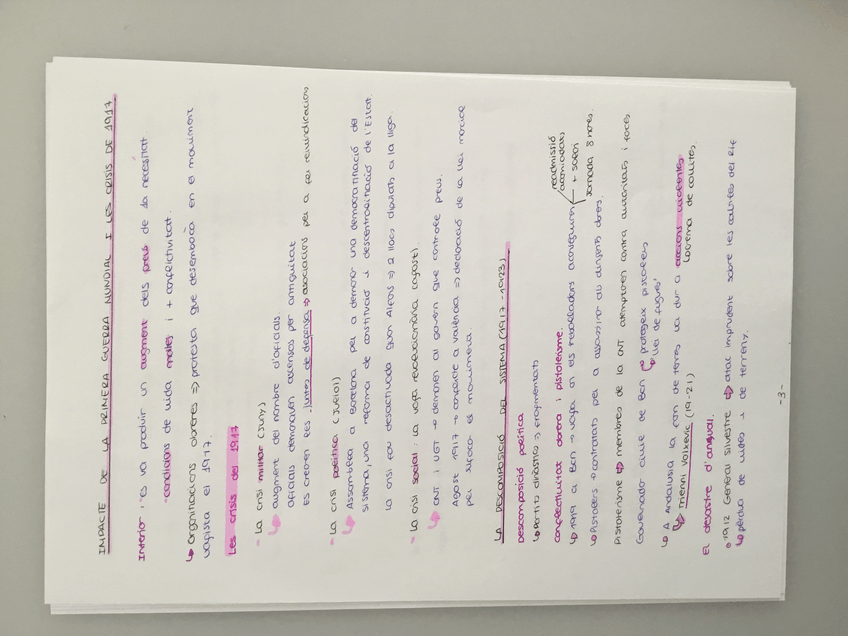 IMPACTE DE LA PRIMERA GUERRA MUNDIAL I LES CRISIS DE 1917.
Interior: es va produir un augment dels preus de 1a necessitat
condicions de vida males i + conflictivitat.
↳ Organitzacions obreres ⇒ protesta que desemboca en el moviment
vagista el 1917.
Les crisis del 1917
- La crisi militar (Juny)
↳ augment del nombre d'oficials
oficials demanaven ascensos per antiguitat
Es creen les juntes de defensa ⇒ associacions per a fer reivindicacions
- La crisi política (Juliol)
↳ Assemblea a Barcelona per a demanar una democratització del
sistema, una reforma de constitució i descentralització de l'Estat.
La crisi fou desactivada quan Alfons ⇒ 2 llocs diputats a la lliga.
- La crisi social: la vaga revolucionària (agost)
↳ CNT i UGT → demanen al govern que controle preus.
Agost 1917 → comitè a València ⇒ declaració de la llei marcial
per sufocar el moviment.
LA DESCOMPOSICIÓ DEL SISTEMA (1917-1923)
Descomposició política
↳ Partits dinàstics ⇒ fragmentats
conflictivitat obrera i pistolerisme.
↳ 1919 a BCN → vaga on els treballadors aconseguiren
readmissió
acomiadats
+ salari
Jornada 8 hores.
↳ Pistolers → contractats per a assassinar als dirigents obrers.
Pistolerisme ⇨ membres de la CNT atemptaren contra autoritats i
Governador civil de Bcn ⇨ protegeix pistolers
↳ llei de fugues
↳ A Andalusia la fam de terres va dur a accions violentes
↳ Trienni Bolxevic (19-21)
crema de collites
El desastre d'annual.
1912 General Silvestre ⇨ atac imprudent sobre les cabiles del Rif
↳ pèrdua de vides i de terreny.
-3-